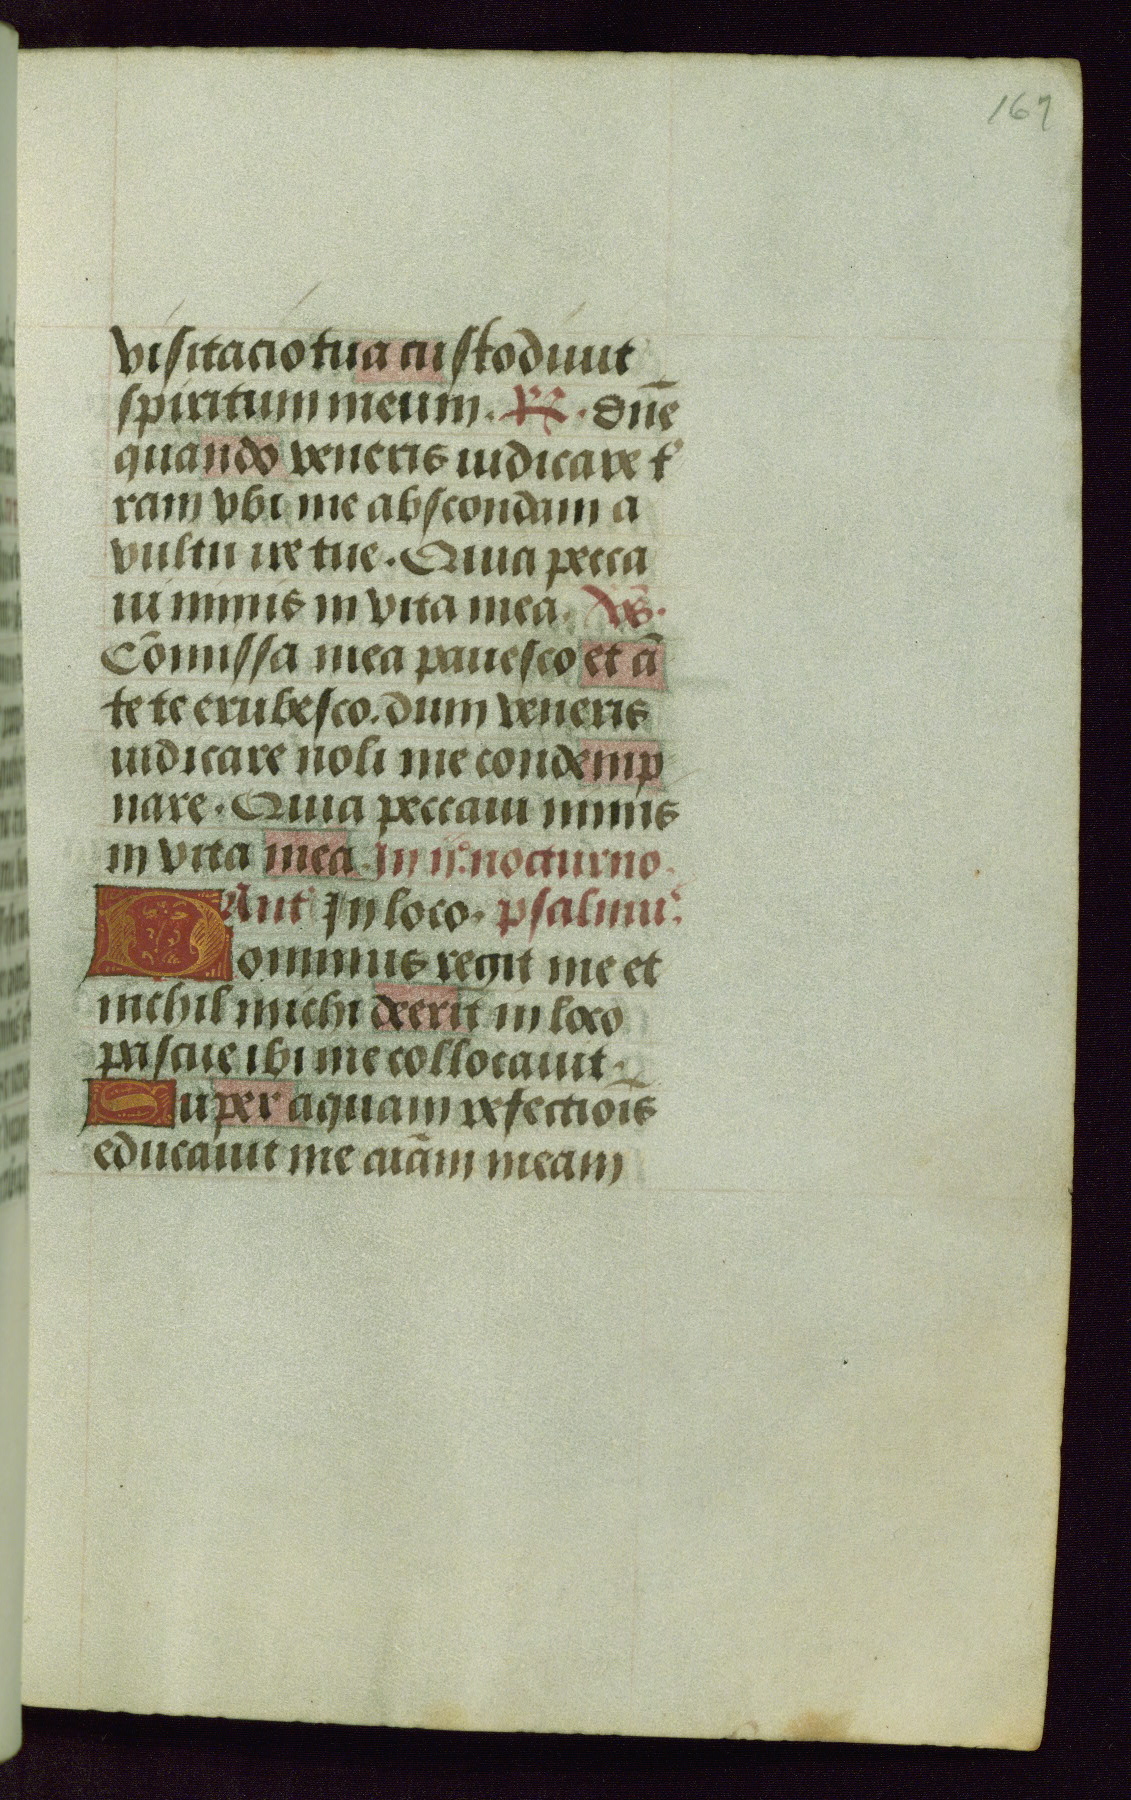 167
visitacio tua custodiuit
spiritum meum. R. dn̄e
quando veneris iudicare t̉
ram vbi me abscondam a
vultu ire tue. Quia pecca
ui nimis in vita mea. Vs.
Cōmissa mea pauesco et ā
te te erubesco. dum veneris
iudicare noli me condemp
nare. Quia peccaui nimis
in vita mea. In ii.º nocturno.
Ant̉ In loco. psalmuˢ.
Dominus regit me et
nichil michi deerit in loco
pascue ibi me collocauit.
Super aquam refectiōis
educauit me aīam meam